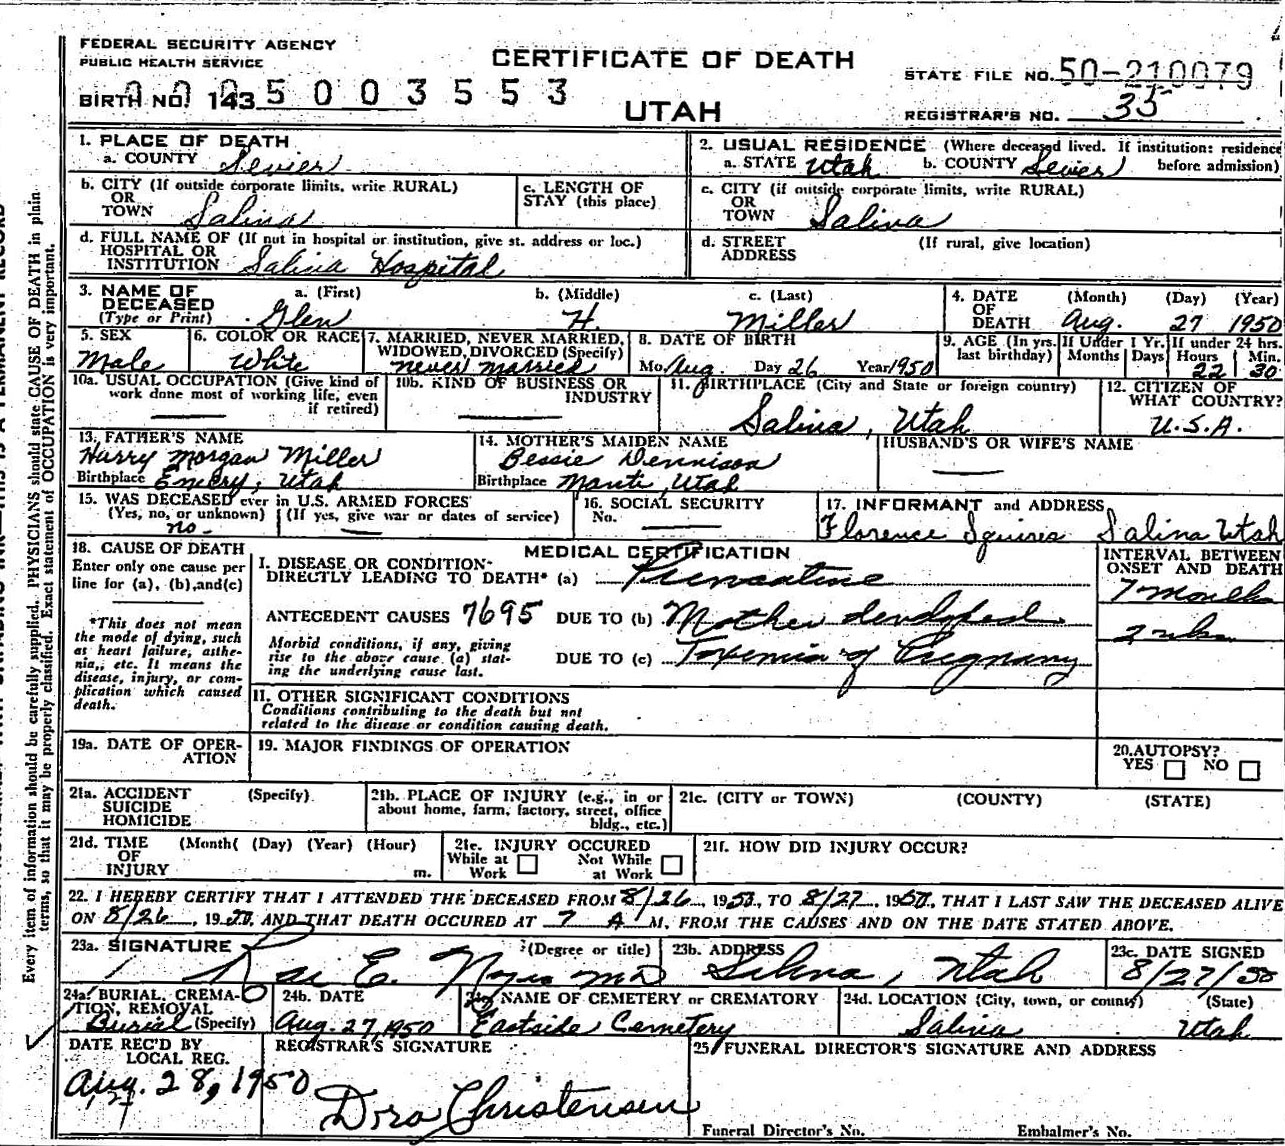 FEDERAL SECURITY AGENCY
PUBLIC HEALTH SERVICE
CERTIFICATE OF DEATH
UTAH
STATE FILE NO. 50-210079
BIRTH NO. 143 5003553
REGISTRAR'S NO. 35
1. PLACE OF DEATH
a. COUNTY Sevier
2. USUAL RESIDENCE (Where deceased lived. If institution: residence before admission)
a. STATE Utah b. COUNTY Sevier
b. CITY (If outside corporate limits, write RURAL)
OR
TOWN Salina
c. LENGTH OF
STAY (this place)
c. CITY (if outside corporate limits, write RURAL)
OR
TOWN Salina
d. FULL NAME OF (If not in hospital or institution, give st. address or loc.)
HOSPITAL OR
INSTITUTION Salina Hospital
d. STREET (If rural, give location)
ADDRESS
3. NAME OF
DECEASED
(Type or Print)
a. (First) b. (Middle) c. (Last)
Glen H. Miller
4. DATE OF DEATH (Month) (Day) (Year)
Aug. 27 1950
5. SEX
Male
6. COLOR OR RACE
White
7. MARRIED, NEVER MARRIED,
WIDOWED, DIVORCED (Specify)
never married
8. DATE OF BIRTH
Mo. Aug. Day 26 Year 1950
9. AGE (In yrs. last birthday)
If Under 1 Yr. Months Days
If under 24 hrs. Hours Min.
22 30
10a. USUAL OCCUPATION (Give kind of
work done most of working life, even
if retired)
10b. KIND OF BUSINESS OR
INDUSTRY
11. BIRTHPLACE (City and State or foreign country)
Salina, Utah
12. CITIZEN OF
WHAT COUNTRY?
U.S.A.
13. FATHER'S NAME
Harry Morgan Miller
Birthplace Emery, Utah
14. MOTHER'S MAIDEN NAME
Bessie Dennison
Birthplace Manti, Utah
HUSBAND'S OR WIFE'S NAME
15. WAS DECEASED ever in U.S. ARMED FORCES
(Yes, no, or unknown) (If yes, give war or dates of service)
no
16. SOCIAL SECURITY
No.
17. INFORMANT and ADDRESS
Florence Squires Salina Utah
18. CAUSE OF DEATH
Enter only one cause per
line for (a), (b), and (c)
*This does not mean
the mode of dying, such
as heart failure, asthe-
nia, etc. It means the
disease, injury, or com-
plication which caused
death.
MEDICAL CERTIFICATION
I. DISEASE OR CONDITION
DIRECTLY LEADING TO DEATH* (a)
ANTECEDENT CAUSES 7695 DUE TO (b) Mother developed
Morbid conditions, if any, giving
rise to the above cause (a) stat-
ing the underlying cause last.
DUE TO (c) Toxemia of Pregnany
INTERVAL BETWEEN
ONSET AND DEATH
7 months
2 wks
II. OTHER SIGNIFICANT CONDITIONS
Conditions contributing to the death but not
related to the disease or condition causing death.
19a. DATE OF OPER-
ATION
19. MAJOR FINDINGS OF OPERATION
20. AUTOPSY?
YES NO
21a. ACCIDENT (Specify)
SUICIDE
HOMICIDE
21b. PLACE OF INJURY (e.g., in or
about home, farm, factory, street, office
bldg., etc.)
21c. (CITY or TOWN) (COUNTY) (STATE)
21d. TIME (Month( (Day) (Year) (Hour)
OF
INJURY m.
21e. INJURY OCCURED
While at Work Not While at Work
21f. HOW DID INJURY OCCUR?
22. I HEREBY CERTIFY THAT I ATTENDED THE DECEASED FROM 8/26, 1950, TO 8/27, 1950, THAT I LAST SAW THE DECEASED ALIVE
ON 8/26, 1950, AND THAT DEATH OCCURED AT 7 A M, FROM THE CAUSES AND ON THE DATE STATED ABOVE.
23a. SIGNATURE (Degree or title)
Rae E. Noyes MD
23b. ADDRESS
Salina, Utah
23c. DATE SIGNED
8/27/50
24a. BURIAL, CREMA-
TION, REMOVAL
Burial (Specify)
24b. DATE
Aug. 27, 1950
24c. NAME OF CEMETERY or CREMATORY
Eastside Cemetery
24d. LOCATION (City, town, or county) (State)
Salina Utah
DATE REC'D BY
LOCAL REG.
Aug. 28, 1950
REGISTRAR'S SIGNATURE
Dora Christensen
25. FUNERAL DIRECTOR'S SIGNATURE AND ADDRESS
Funeral Director's No. Embalmer's No.
Every item of information should be carefully supplied. PHYSICIANS should state CAUSE OF DEATH in plain
terms, so that it may be properly classified. Exact statement of OCCUPATION is very important.